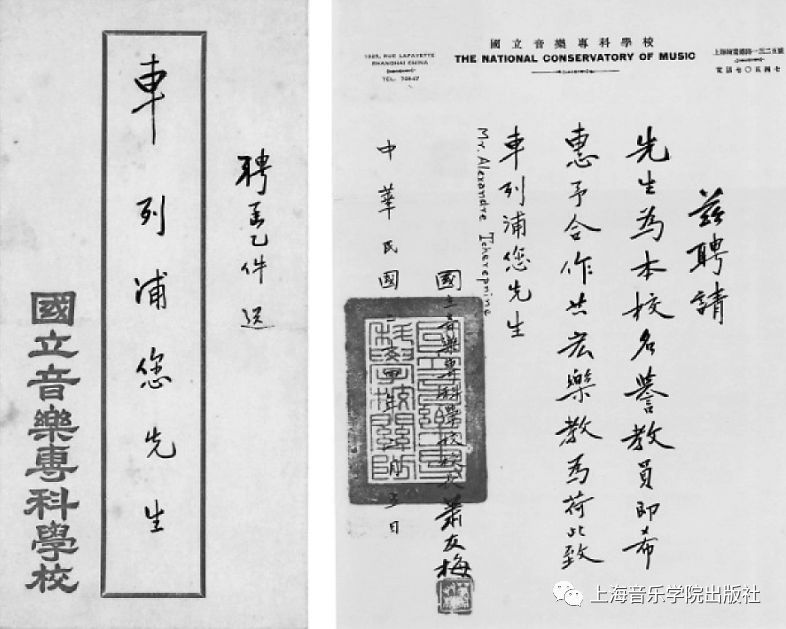 聘函乙件 送
車列浦您先生
國立音樂專科學校
國立音樂專科學校
THE NATIONAL CONSERVATORY OF MUSIC
1325, RUE LAFAYETTE
SHANGHAI CHINA
TEL. 70547
上海辣斐德路一三二五號
電話七〇五四七
茲聘請
先生為本校名譽教員即希
惠予合作共宏樂教為荷此致
車列浦您先生
Mr. Alexandre Tcherepnine
國立音樂專科學校校長蕭友梅
中華民國
日
上海音乐学院出版社